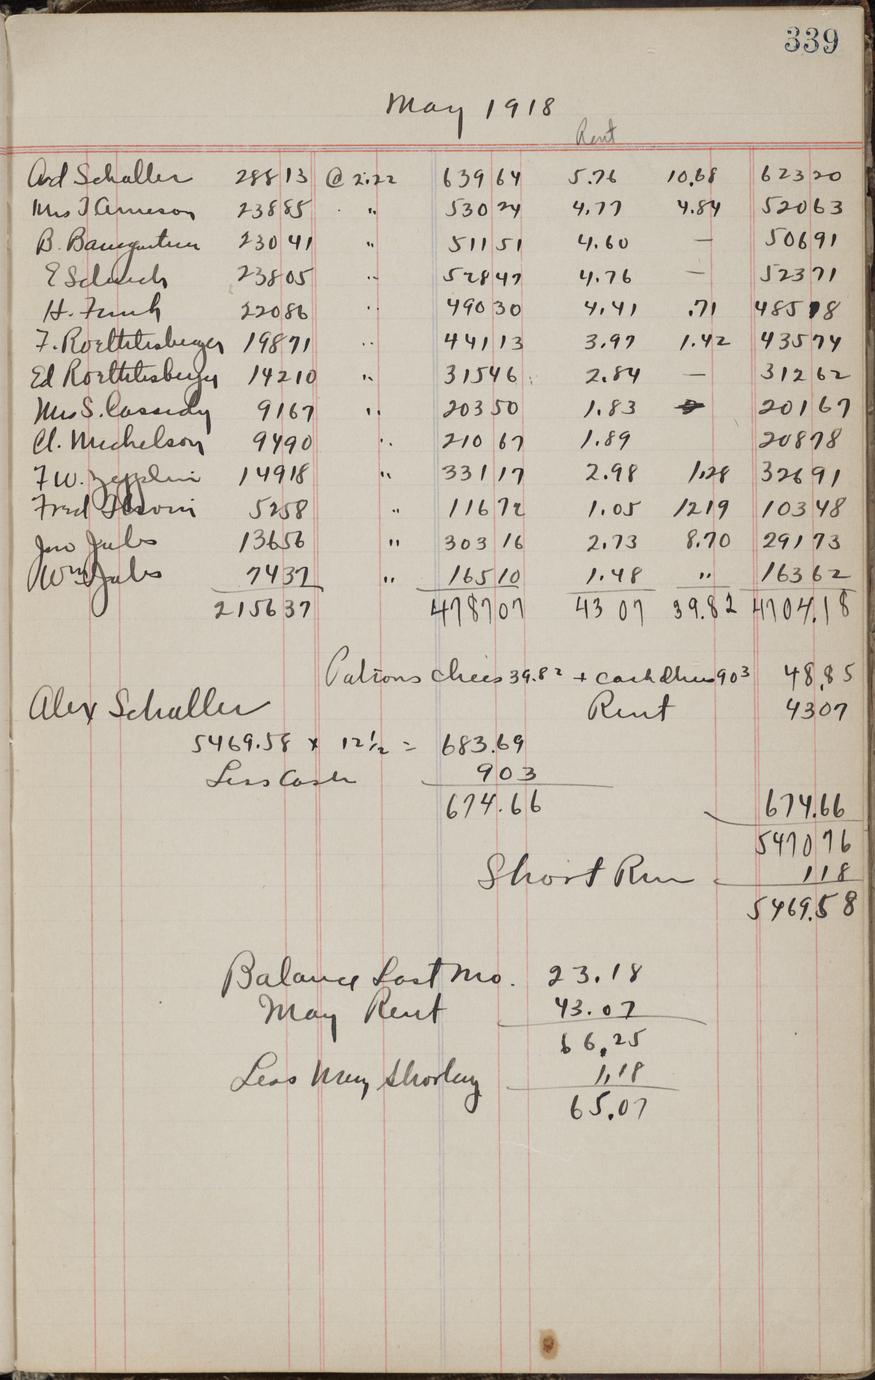 339
May 1918
Rent
Ard Schaller 28813 @ 2.22 639 64 5.76 10.68 623 20
Mrs T Arneson 23885 " 530 24 4.77 4.84 520 63
B. Baumgartner 23041 " 511 51 4.60 — 506 91
E 23805 " 528 47 4.76 — 523 71
H. Funk 22086 " 490 30 4.41 .71 485 18
F. Roethlisberger 19871 " 441 13 3.97 1.42 435 74
Ed Roethlisberger 14210 " 315 46 2.84 — 312 62
Mrs S. Cassidy 9167 " 203 50 1.83 201 67
Cl. Michelson 9490 " 210 67 1.89 208 78
F W. Zepplin 14918 " 331 17 2.98 1.28 326 91
Fred 5258 " 116 72 1.05 1219 103 48
Jno Jubs 13656 " 303 16 2.73 8.70 291 73
Wm Jubs 7437 " 165 10 1.48 " 163 62
215637 4787 07 43 07 39.82 4704.18
Patrons chees 39.82 + cash chees 903 48.85
Alex Schaller Rent 4307
5469.58 x 12 1/2 = 683.69
Less Cash 903
674.66 674.66
5470 76
Short Run 1 18
5469.58
Balance Last Mo. 23.18
May Rent 43.07
66.25
Less May Shortag 1.18
65.07